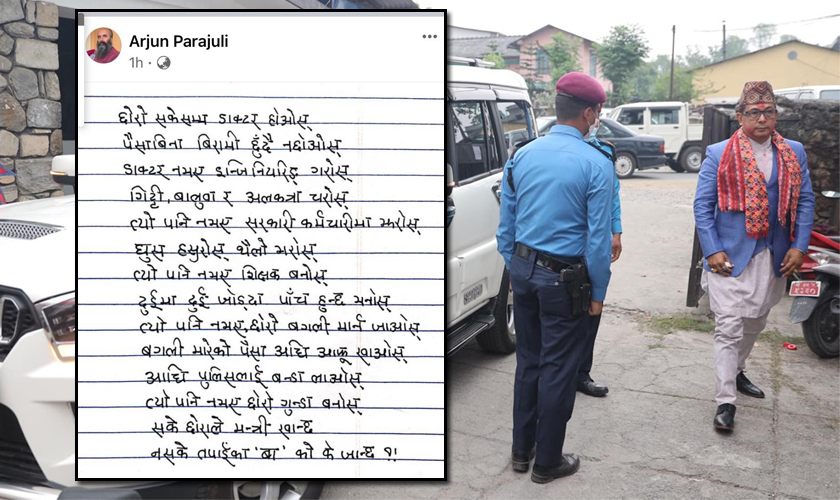 Arjun Parajuli
1h ·
छोरो सकेसम्म डाक्टर होओस्
पैसाबिना बिरामी छुँदै नछोओस्
डाक्टर नभए इन्जिनियरिङ्ग गरोस्
गिट्टी, बालुवा र अलकत्रा चरोस्
त्यो पनि नभए सरकारी कर्मचारीमा झरोस्
घुस हसुरोस् थैलो भरोस्
त्यो पनि नभए शिक्षक बनोस्
दुईमा दुई जोड्दा पाँच हुन्छ भनोस्
त्यो पनि नभए, छोरो बगली मार्न जाओस्
बगली मारेको पैसा आधि आफू खाओस्
आधि पुलिसलाई बन्डा लाओस्
त्यो पनि नभए छोरो गुन्डा बनोस्
सके छोराले मन्त्री खान्छ
नसके तपाईका 'बा' को के जान्छ ?!